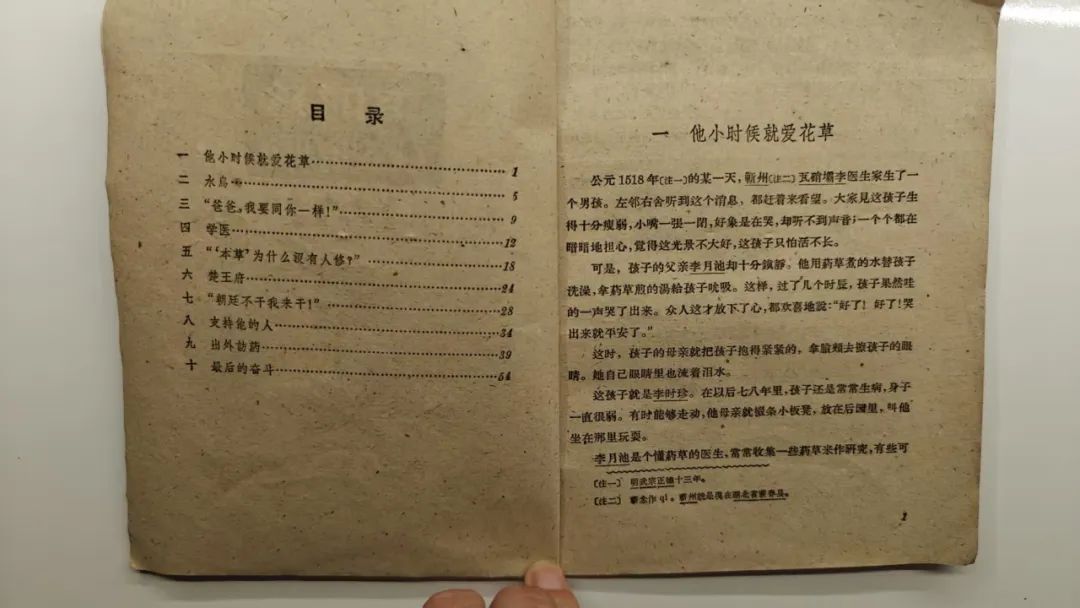 目录
一 他小时候就爱花草……1
二 水鸟……5
三 “爸爸，我要同你一样！”……9
四 学医……12
五 “‘本草’为什么没有人修？”……18
六 楚王府……24
七 “朝廷不干我来干！”……28
八 支持他的人……34
九 出外訪药……39
十 最后的奋斗……54
一 他小时候就爱花草
公元1518年〔注一〕的某一天，蘄州〔注二〕瓦硝壩李医生家生了一
个男孩。左邻右舍听到这个消息，都赶着来看望。大家見这孩子生
得十分瘦弱，小嘴一張一閉，好象是在哭，却听不到声音；一个个都在
暗暗地担心，覚得这光景不大好，这孩子只怕活不长。
可是，孩子的父亲李月池却十分鎮靜。他用葯草煮的水替孩子
洗澡，拿葯草煎的湯給孩子吮吸。这样，过了几个时辰，孩子果然哇
的一声哭了出来。众人这才放下了心，都欢喜地說：“好了！好了！哭
出来就平安了。”
这时，孩子的母亲就把孩子抱得紧紧的，拿脸頰去擦孩子的眼
睛。她自己眼睛里也流着泪水。
这孩子就是李时珍。在以后七八年里，孩子还是常常生病，身子
一直很弱。有时能够走动，他母亲就掇条小板凳，放在后園里，叫他
坐在那里玩耍。
李月池是个懂葯草的医生，常常收集一些葯草来作研究，有些可
〔注一〕 明武宗正德十三年。
〔注二〕 蘄念作qí。蘄州就是現在湖北省蘄春县。
1